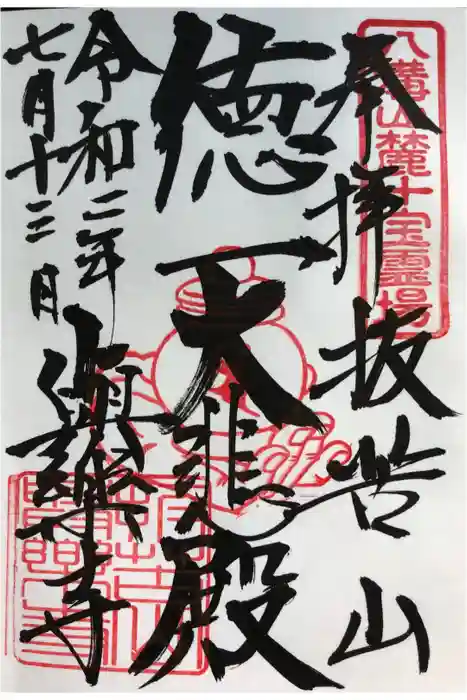 八溝山麓十宝靈場
奉拝 抜苦山
徳 大悲殿
令和二年
七月十三日
樂寺